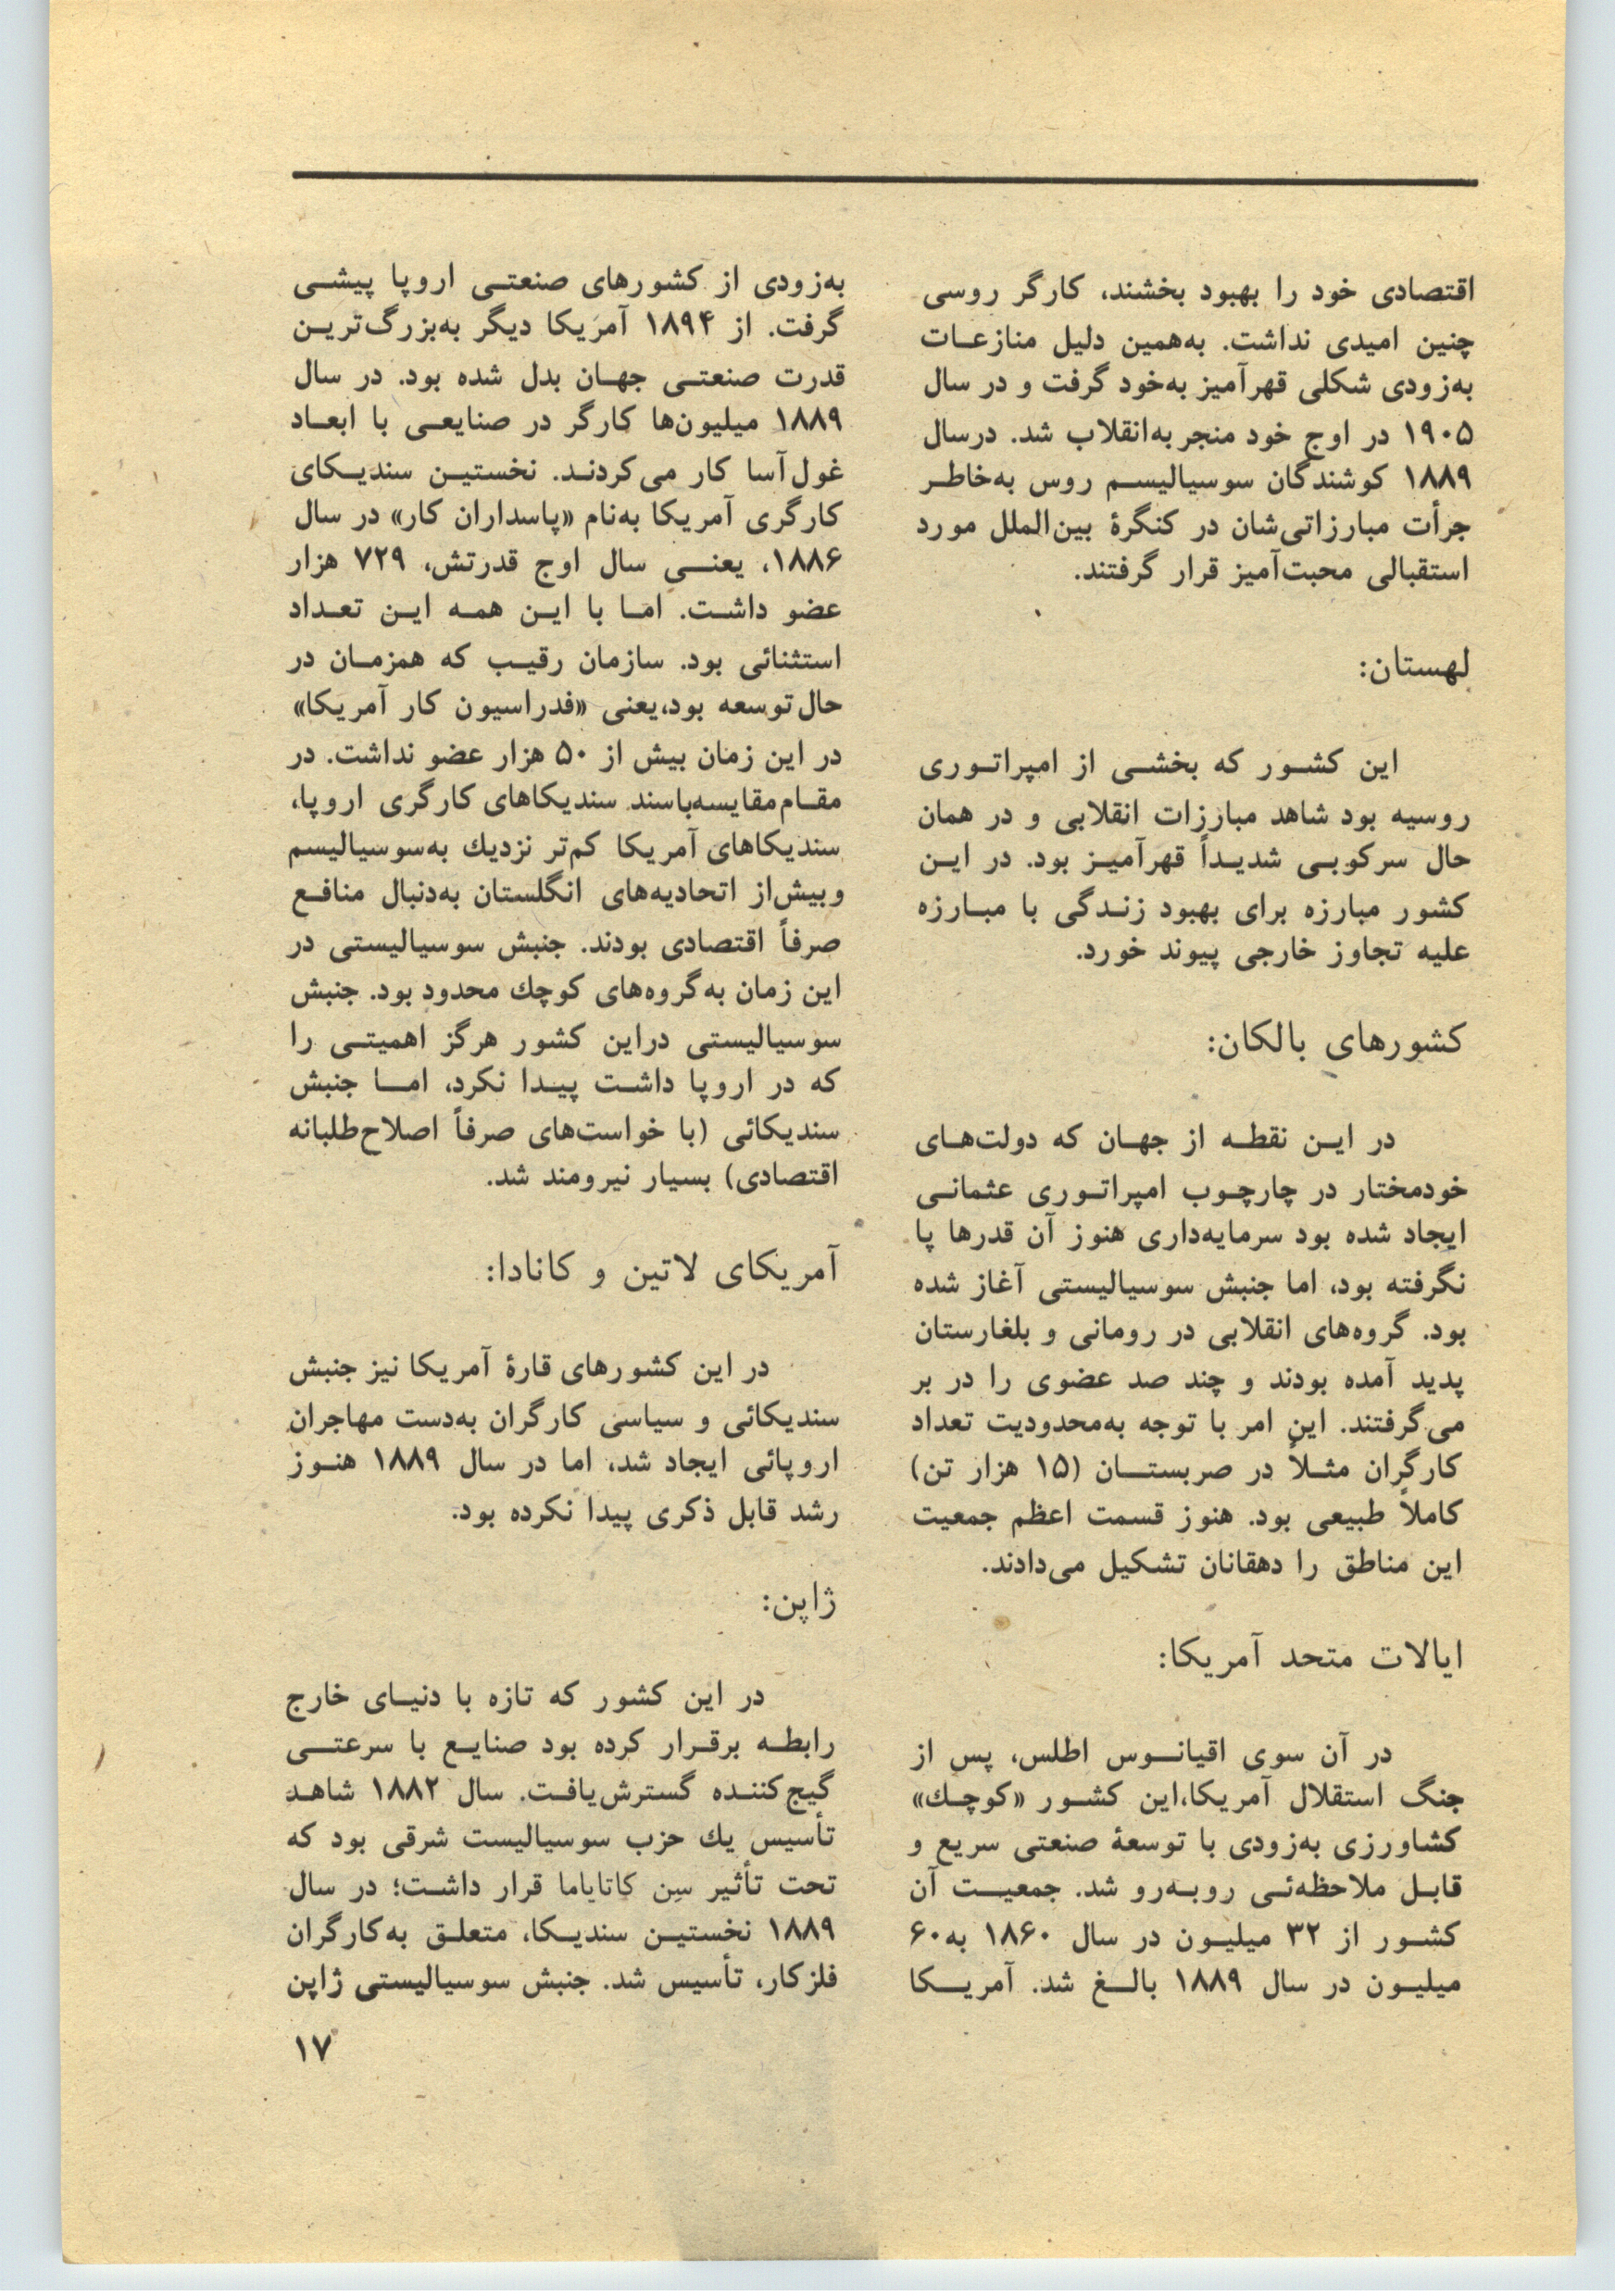 اقتصادی خود را بهبود بخشند، کارگر روسی
چنین امیدی نداشت. به‌همین دلیل منازعـات
به‌زودی شکلی قهرآمیز به‌خود گرفت و در سال
۱۹۰۵ در اوج خود منجر به‌انقلاب شد. درسال
۱۸۸۹ کوشندگان سوسیالیسـم روس به‌خاطـر
جرأت مبارزاتی‌شان در کنگرهٔ بین‌الملل مورد
استقبالی محبت‌آمیز قرار گرفتند.
لهستان:
این کشـور که بخشـی از امپراتـوری
روسیه بود شاهد مبارزات انقلابی و در همان
حال سرکوبـی شدیـداً قهرآمیـز بود. در ایـن
کشور مبارزه برای بهبود زنـدگی با مبـارزه
علیه تجاوز خارجی پیوند خورد.
کشورهای بالکان:
در ایـن نقطـه از جهـان که دولت‌هـای
خودمختار در چارچـوب امپراتـوری عثمانـی
ایجاد شده بود سرمایه‌داری هنوز آن قدرها پا
نگرفته بود، اما جنبش سوسیالیستی آغاز شده
بود. گروه‌های انقلابی در رومانی و بلغارستان
پدید آمده بودند و چند صد عضوی را در بر
می‌گرفتند. این امر با توجه به‌محدودیت تعداد
کارگران مثـلاً در صربستـــان (۱۵ هزار تن)
کاملاً طبیعی بود. هنوز قسمت اعظم جمعیت
این مناطق را دهقانان تشکیل می‌دادند.
ایالات متحد آمریکا:
در آن سوی اقیانــوس اطلس، پس از
جنگ استقلال آمریکا،این کشـور «کوچـك»
کشاورزی به‌زودی با توسعهٔ صنعتی سریع و
قابـل ملاحظه‌ئـی روبـه‌رو شد. جمعیــت آن
کشـور از ۳۲ میلیـون در سال ۱۸۶۰ به‌۶۰
میلیـون در سال ۱۸۸۹ بالــغ شد. آمریــکا
به‌زودی از کشورهای صنعتـی اروپا پیشـی
گرفت. از ۱۸۹۴ آمریکا دیگر به‌بزرگ‌تریـن
قدرت صنعتـی جهـان بدل شده بود. در سال
۱۸۸۹ میلیون‌ها کارگر در صنایعـی با ابعـاد
غول‌آسا کار می‌کردنـد. نخستیـن سندیـکای
کارگری آمریکا به‌نام «پاسداران کار» در سال
۱۸۸۶، یعنــی سال اوج قدرتش، ۷۲۹ هزار
عضو داشـت. امـا با ایـن همـه ایـن تعـداد
استثنائی بود. سازمان رقیـب که همزمـان در
حال توسعه بود،یعنی «فدراسیون کار آمریکا»
در این زمان بیش از ۵۰ هزار عضو نداشت. در
مقـام‌مقایسه‌باسند سندیکاهای کارگری اروپا،
سندیکاهای آمریکا کم‌تر نزدیك به‌سوسیالیسم
وبیش‌از اتحادیه‌های انگلستان به‌دنبال منافـع
صرفاً اقتصادی بودند. جنبش سوسیالیستی در
این زمان به‌گروه‌های کوچك محدود بود. جنبش
سوسیالیستی دراین کشور هرگز اهمیتـی را
که در اروپا داشـت پیـدا نکرد، امــا جنبش
سندیکائی (با خواست‌های صرفاً اصلاح‌طلبانه
اقتصادی) بسیار نیرومند شد.
آمریکای لاتین و کانادا:
در این کشورهای قارهٔ آمریکا نیز جنبش
سندیکائی و سیاسی کارگران به‌دست مهاجران
اروپائی ایجاد شد، اما در سال ۱۸۸۹ هنـوز
رشد قابل ذکری پیدا نکرده بود.
ژاپن:
در این کشور که تازه با دنیـای خارج
رابطـه برقـرار کرده بود صنایـع با سرعتــی
گیج‌کننـده گسترش‌یافـت. سال ۱۸۸۲ شاهـد
تأسیس یك حزب سوسیالیست شرقی بود که
تحت تأثیر سِن کاتایاما قرار داشـت؛ در سال
۱۸۸۹ نخستیـن سندیـکا، متعلـق به‌کارگران
فلزکار، تأسیس شد. جنبش سوسیالیستی ژاپن
۱۷